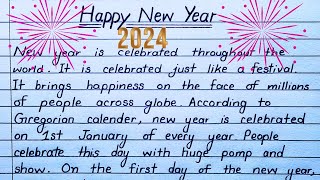 Happy New Year
2024
New year is celebrated throughout the
world. It is celebrated just like a festival.
It brings happiness on the face of millions
of people across globe. According to
Gregorian calender, new year is celebrated
on 1st January of every year People
celebrate this day with huge pomp and
show. On the first day of the new year,